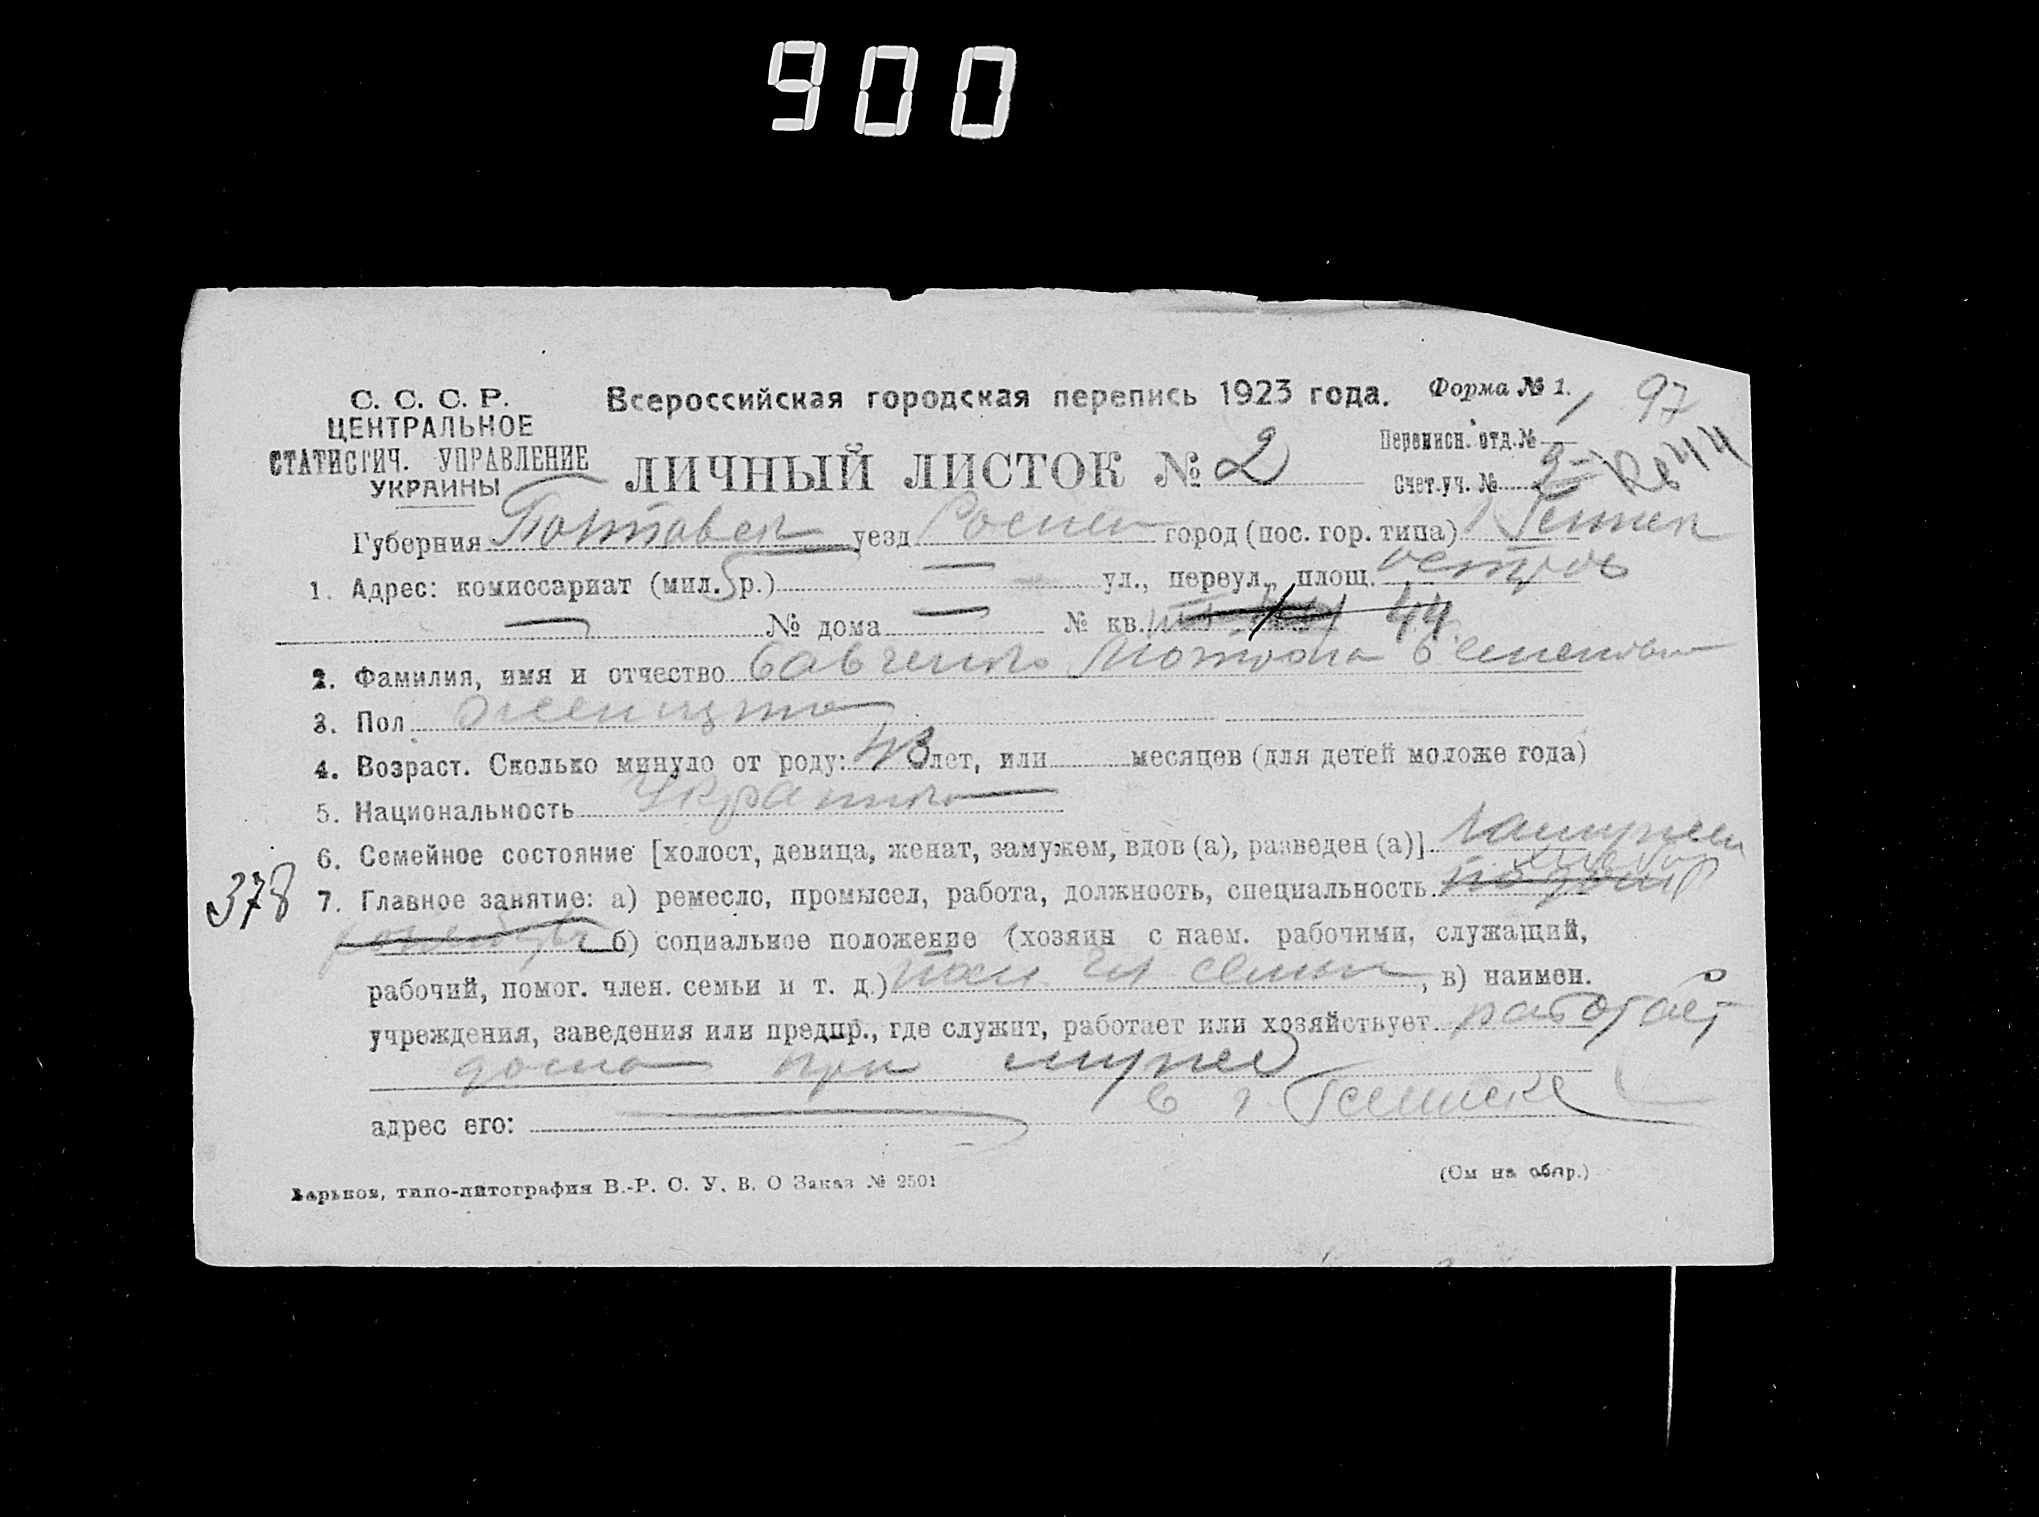 900
С. С. С. Р.
ЦЕНТРАЛЬНОЕ
СТАТИСТИЧ. УПРАВЛЕНИЕ
УКРАИНЫ
Всероссийская городская перепись 1923 года.
Форма № 1.
97
ЛИЧНЫЙ ЛИСТОК № 2
Переписн. отд. № 1
Счет. уч. № 2
Губерния Полтавск уезд Ромен город (пос. гор. типа) г Гельмяз
1. Адрес: комиссариат (мил. р.) — ул., переул., площ. остров
— № дома — № кв. 44
2. Фамилия, имя и отчество Савченко Мотрона Семеновн
3. Пол женщина
4. Возраст. Сколько минуло от роду: 43 лет, или месяцев (для детей моложе года)
5. Национальность Украинка
6. Семейное состояние [холост, девица, женат, замужем, вдов (а), разведен (а)] замужем
378
7. Главное занятие: а) ремесло, промысел, работа, должность, специальность
б) социальное положение (хозяин с наем. рабочими, служащий,
рабочий, помог. член. семьи и т. д.) пом. чл семьи, в) наимен.
учреждения, заведения или предпр., где служит, работает или хозяйствует работает
дома при муже
адрес его: — в г.
Харьков, типо-литография В.-Р. С. У. В. О Заказ № 2501
(См на обор.)